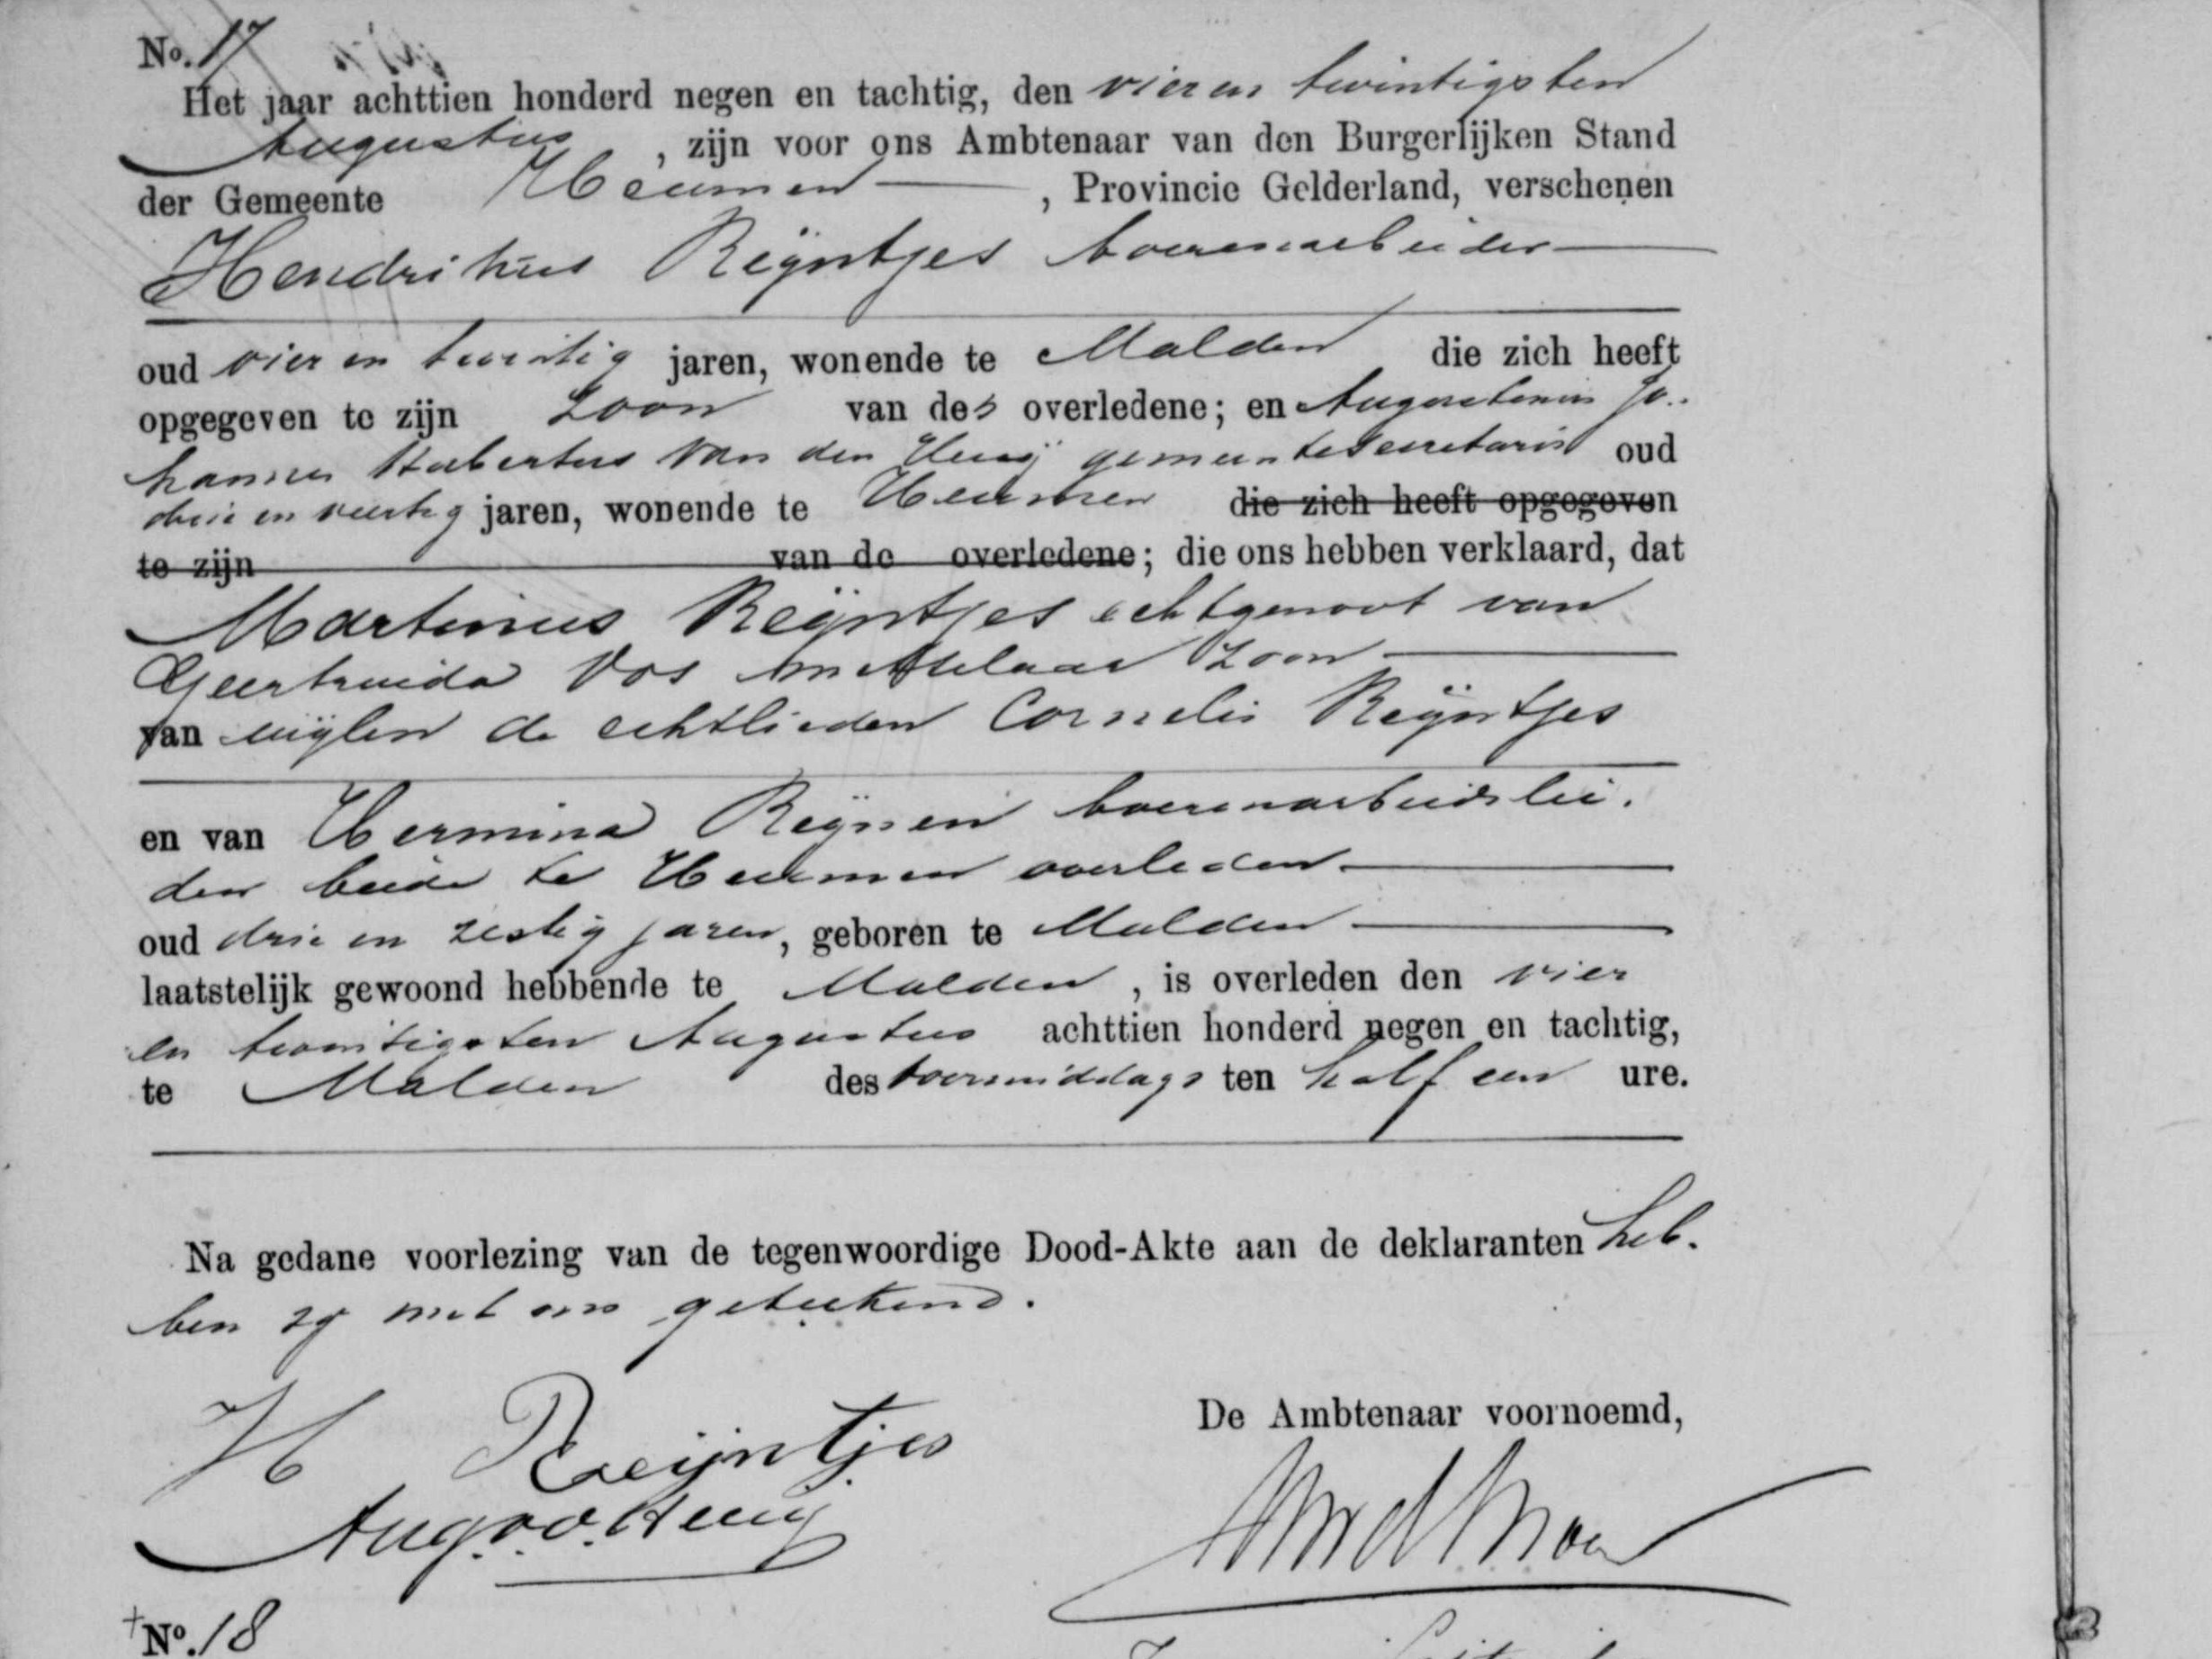 No. 17
Het jaar achttien honderd negen en tachtig, den vier en twintigsten
Augustus, zijn voor ons Ambtenaar van den Burgerlijken Stand
der Gemeente Heumen, Provincie Gelderland, verschenen
Hendrikus Reijntjes boerenarbeider
oud vier en twintig jaren, wonende te Malden die zich heeft
opgegeven te zijn Zoon van des overledene; en Augustinus Jo-
hannes Hubertus van den Heuij gemeentesecretaris oud
drie en veertig jaren, wonende te Heumen die zich heeft opgegeven
te zijn van de overledene; die ons hebben verklaard, dat
Martinus Reijntjes echtgenoot van
Geertruida Vos metselaar Zoon
van wijlen de echtlieden Cornelis Reijntjes
en van Hermina Reijnen boerenarbeidslie-
den beide te Heumen overleden
oud drie en zestig jaren, geboren te Malden
laatstelijk gewoond hebbende te Malden, is overleden den vier
en twintigsten Augustus achttien honderd negen en tachtig,
te Malden des voormiddags ten half een ure.
Na gedane voorlezing van de tegenwoordige Dood-Akte aan de deklaranten heb-
ben zij met ons geteekend.
De Ambtenaar voornoemd,
H Reijntjes
Aug. v. d. Heuij
No. 18